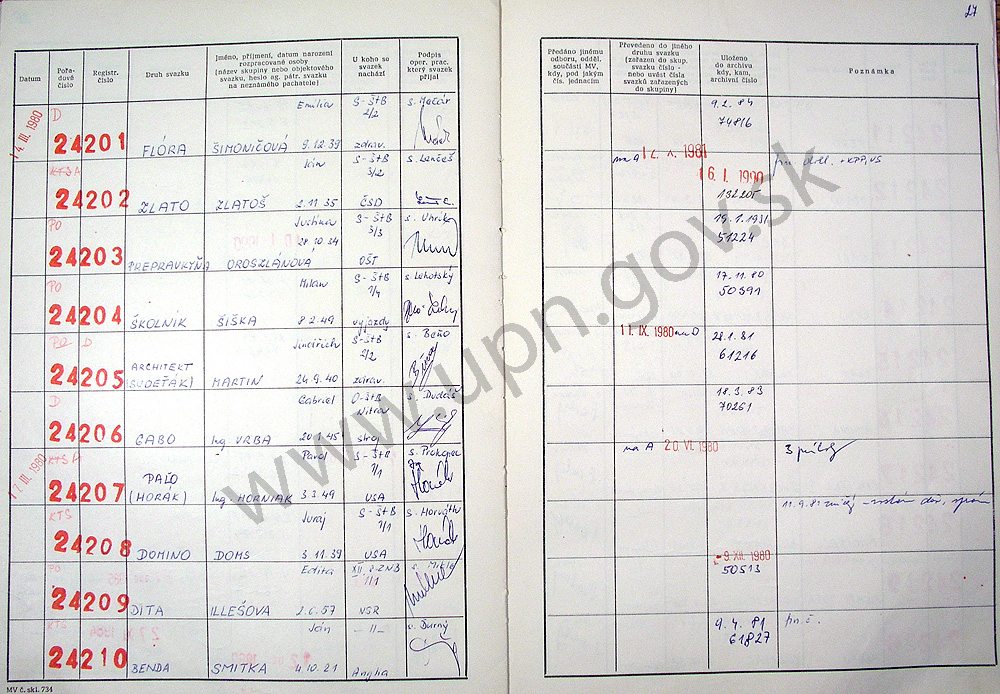 27
Datum
Pořa-
dové
číslo
Registr.
číslo
Druh svazku
Jméno, příjmení, datum narození
rozpracované osoby
(název skupiny nebo objektového
svazku, heslo ag. pátr. svazku
na neznámého pachatele)
U koho se
svazek
nachází
Podpis
oper. prac.
který svazek
přijal
Předáno jinému
odboru, odděl.
součásti MV,
kdy, pod jakým
čís. jednacím
Převedeno do jiného
druhu svazku
(zařazen do skup.
svazku číslo -
nebo uvést čísla
svazků zařazených
do skupiny)
Uloženo
do archivu
kdy, kam,
archivní číslo
Poznámka
14. III. 1980 D Emília S-ŠtB s. Mečár 9.2.84
24201 FLÓRA ŠIMONIČOVÁ 9.12.39 2/2 zdrav. 74816
KTSA Ján S-ŠtB s. Lenčéš na A 1981 16. I. 1990
24202 ZLATO ZLATOŠ 2.11.35 3/2 ČSD 132205
PO Justína S-ŠtB 19.1.1981
24203 PREPRAVKYŇA OROSZLÁNOVÁ 28.10.34 3/3 OŠT 51224
PO Milan S-ŠtB s. Lehotský 17.11.80
24204 ŠKOLNÍK ŠIŠKA 8.2.49 výjazdy 50391
PO D Jindřich S-ŠtB s. Beňo 11. IX. 1980 na D 28.1.81
24205 ARCHITEKT (SUDEŤÁK) MARTIN 24.9.40 2/2 zdrav. 61216
D Gabriel O-ŠtB Nitra s. Dudáš 18.3.83
24206 GABO Ing. VRBA 45 stroj 70261
17. III. 1980 KTSA Pavol S-ŠtB s. Prokopec na A 20. VI. 1980 3 prílohy
24207 PAĽO (HORÁK) Ing. HORNIAK 3.3.49 1/1 USA
KTS Juraj S-ŠtB s. Horváth 11.9.81
24208 DOMINO DOMS 3.11.39 1/1 USA
PO Edita XII. 9. XII. 1980
24209 DITA ILLEŠOVÁ 2.6.57 1/1 NSR 50513
KTS Ján -11- s. Durný 9.4.81
24210 BENDA SMITKA 4.10.21 Anglia 61827
MV č. skl. 734
www.upn.gov.sk